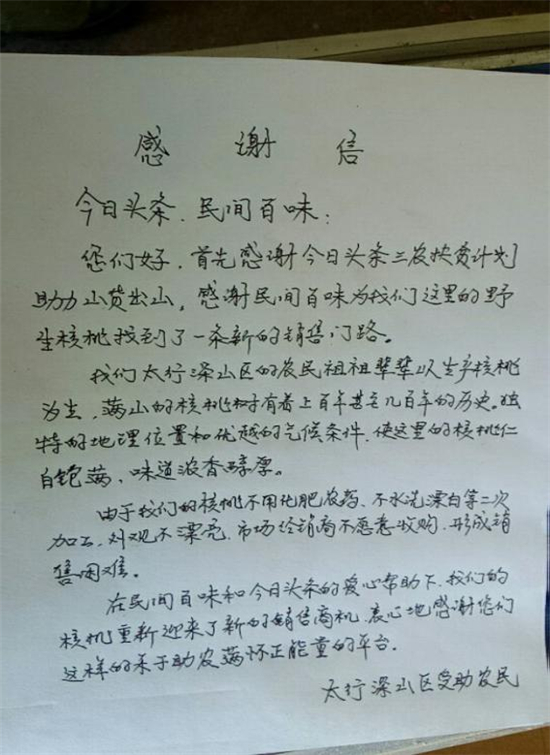 感谢信
今日头条、民间百味：
您们好，首先感谢今日头条三农扶贫计划
助力山货出山，感谢民间百味为我们这里的野
生核桃找到了一条新的销售门路。
我们太行深山区的农民祖祖辈辈以生产核桃
为生，满山的核桃树有着上百年甚至几百年的历史。独
特的地理位置和优越的气候条件，使这里的核桃仁
白饱满、味道浓香醇厚。
由于我们的核桃不用化肥农药、不水洗漂白等二次
加工，外观不漂亮，市场经销商不愿意收购，形成销
售困难。
在民间百味和今日头条的爱心帮助下，我们的
核桃重新迎来了新的销售商机，衷心地感谢您们
这样的乐于助农满怀正能量的平台。
太行深山区受助农民